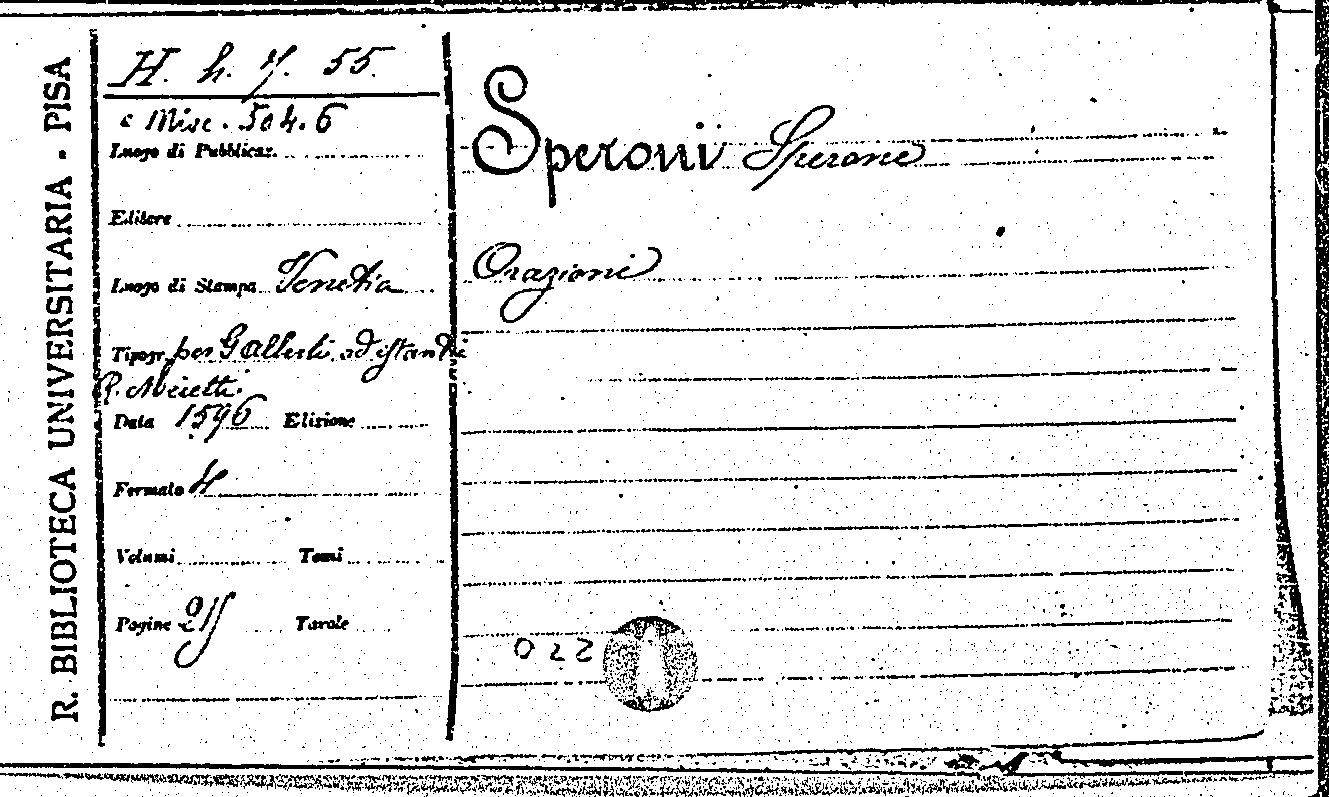 R. BIBLIOTECA UNIVERSITARIA - PISA
H. h. 7. 55.
e Misc. 504.6
Luogo di Pubblicaz.
Editore
Luogo di Stampa Venetia
Tipogr. per Galluti, ad istan di
R. Meietti.
Data 1596 Edizione
Formato 4
Volumi Tomi
Pagine 215 Tavole
Speroni Sperone
Orazioni
022